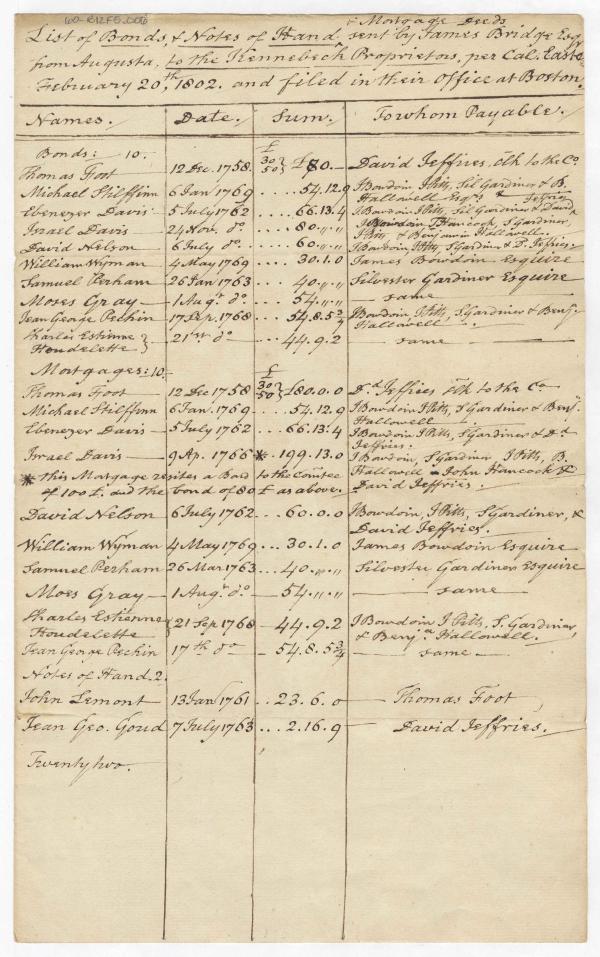 60-RIZF5.0016
& Mortgage Deeds
List of Bonds, & Notes of Hand sent by James Bridge Esqr
from Augusta, to the Kennebeck Proprietors, per Cal. Easte
February 20th, 1802. and filed in their Office at Boston.
Names. Date. Sum. To whom Payable.
Bonds: 10.
Thomas Foot 12 Dec. 1758. £ 30 50} £80.— David Jeffries, Clk to the Co
Michael Stilffinn 6 Jan 1769 .... 54.12.9 J Bowdoin J Pitts, Sil Gardiner & B. Hallowell Esqrs &
Ebenezer Davis 5 July 1762 .... 66.13.4 J Bowdoin J Pitts, Sil Gardiner & David Jeffries
Israel Davis 24 Nov. do .... 80.,,.,, J Bowdoin, J Hancock, S Gardiner, J Pitts & Benjamin Hallowell.
David Nelson 6 July do .... 60.,,.,, J Bowdoin, J Pitts, S Gardiner & D. Jeffries.
William Wyman 4 May 1769 .... 30.1.0 James Bowdoin Esquire
Samuel Perham 26 Jan 1763 .... 40.,,.,, Silvester Gardiner Esquire
Moses Gray — 1 Augt. do .... 54.,,.,, — same —
Jean George Pechin 17 Sep. 1768 .... 54.8.5¾ J Bowdoin, J Pitts, S Gardiner & Benj. Hallowell
Charles Estienne Houdelette } 21st do — 44.9.2 — same —
Mortgages: 10.
Thomas Foot — 12 Dec 1758 £ 30 50} £80.0.0 Dd Jeffries Clk to the Co
Michael Stilffinn 6 Jan. 1769 .... 54.12.9 J Bowdoin J Pitts, S Gardiner & Benj. Hallowell
Ebenezer Davis — 5 July 1762 .... 66.13.4 J Bowdoin J Pitts, S Gardiner & Dd Jeffries.
Israel Davis — 9 Ap. 1766 * 199.13.0 J Bowdoin, S Gardiner, J Pitts, B. Hallowell John Hancock & David Jeffries.
* this Mortgage resites a Bond to the Comtee
of 100 £. and the bond of 80 £ as above.
David Nelson 6 July 1762 .... 60.0.0 J Bowdoin, J Pitts, S Gardiner, & David Jeffries.
William Wyman 4 May 1769 ... 30.1.0 James Bowdoin Esquire
Samuel Perham 26 Mar 1763 ... 40.,,.,, Silvester Gardiner Esquire
Moes Gray — 1 Augt. do — 54.,,.,, — same
Charles Estienne Houdelette { 21 Sep 1768 — 44.9.2 J Bowdoin J Pitts, S. Gardiner, & Benja Hallowell.
Jean George Pechin 17th do — 54.8.5¾ — same —
Notes of Hand. 2.
John Lemont — 13 Jan 1761 .. 23.6.0 — Thomas Foot
Jean Geo. Goud 7 July 1763 ... 2.16.9 — David Jeffries.
Twenty two.